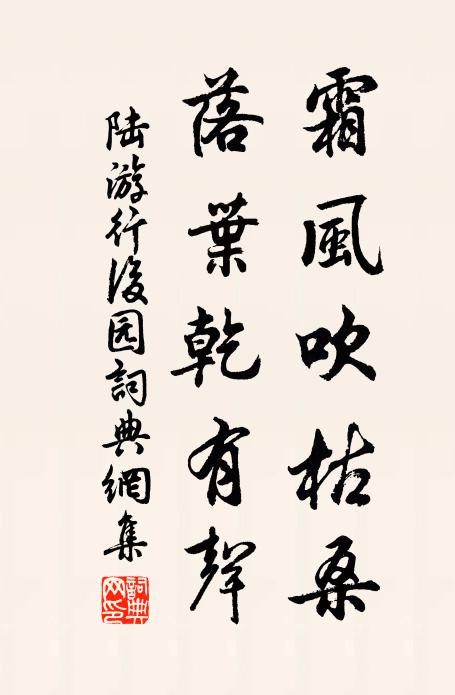 霜風吹枯桑
落葉乾有聲
陆游行後园詞典網集
詞典網印